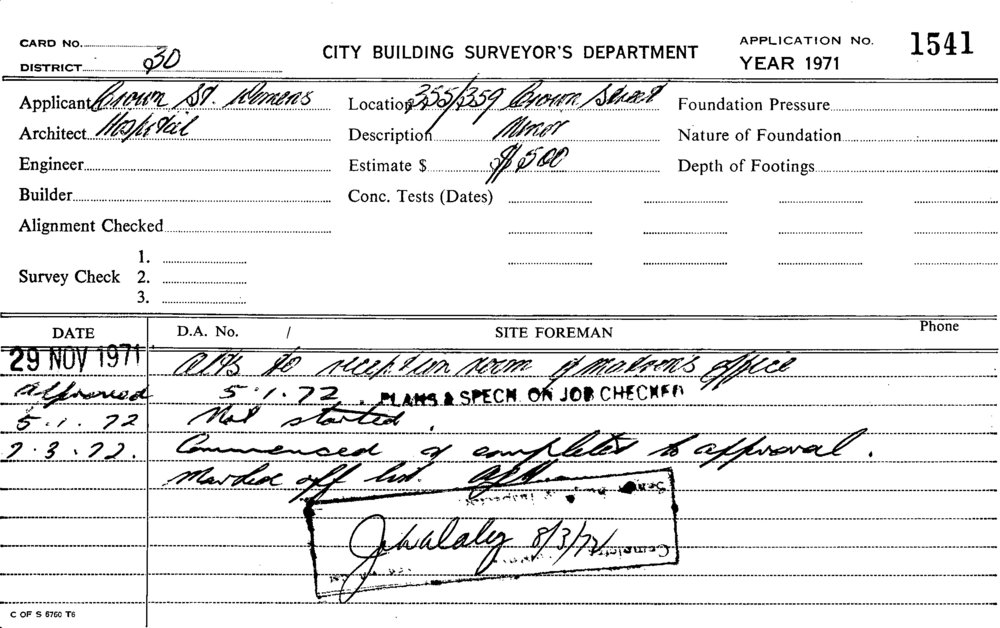 CARD No.
DISTRICT 30
CITY BUILDING SURVEYOR'S DEPARTMENT
APPLICATION No. 1541
YEAR 1971
Applicant Crown St. Womens
Location 355/359 Crown Street
Foundation Pressure
Architect Hospital
Description Minor
Nature of Foundation
Engineer
Estimate $ $500
Depth of Footings
Builder
Conc. Tests (Dates)
Alignment Checked
Survey Check
1.
2.
3.
DATE
D.A. No. /
SITE FOREMAN
Phone
29 NOV 1971 to reception room & matron's office
Approved 5.1.72. PLANS & SPECN. ON JOB CHECKED
5.1.72 Not started.
7.3.72. Commenced & completed to approval.
Marked off list.
8/3/72
C OF S 6760 T6